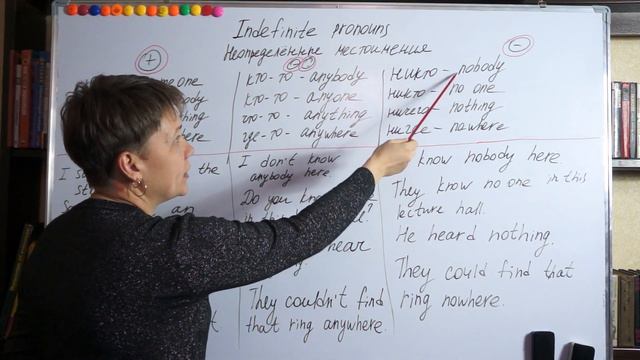 Indefinite pronouns
Неопределённые местоимения
+
one
кто-то - anybody
кто-то - anyone
что-то - anything
где-то - anywhere
-
никто - nobody
никто - no one
ничего - nothing
нигде - nowhere
the
an
I don't know
anybody here.
Do you
hear
They couldn't find
that ring anywhere.
know nobody here.
They know no one in this
lecture hall.
He heard nothing.
They could find that
ring nowhere.